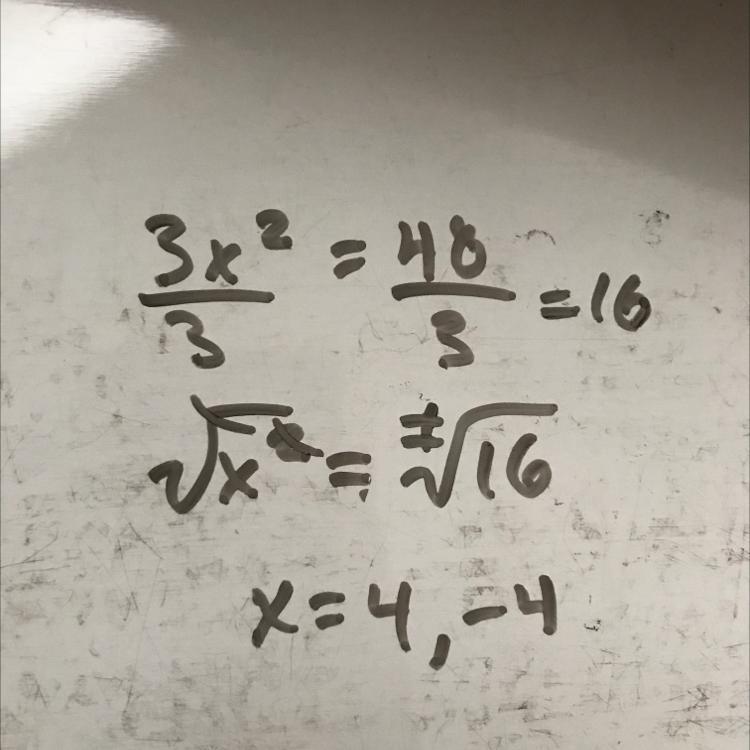 3x² / 3 = 48 / 3 = 16
√x² = ±√16
x = 4, -4